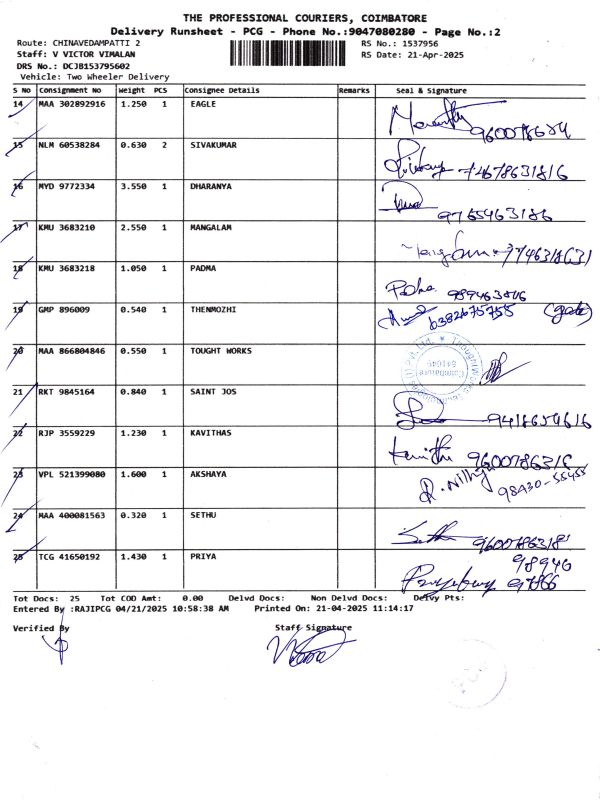 THE PROFESSIONAL COURIERS, COIMBATORE
Delivery Runsheet - PCG - Phone No.:9047080280 - Page No.:2
Route: CHINAVEDAMPATTI 2
Staff: V VICTOR VIMALAN
DRS No.: DCJB153795602
Vehicle: Two Wheeler Delivery
RS No.: 1537956
RS Date: 21-Apr-2025
S No Consignment No Weight PCS Consignee Details Remarks Seal & Signature
14 MAA 302892916 1.250 1 EAGLE
15 NLM 60538284 0.630 2 SIVAKUMAR 74678631816
16 MYD 9772334 3.550 1 DHARANYA 9765463186
17 KMU 3683210 2.550 1 MANGALAM
18 KMU 3683218 1.050 1 PADMA Padma
19 GMP 896009 0.540 1 THENMOZHI (gate)
20 MAA 866804846 0.550 1 TOUGHT WORKS Coimbatore 641049
21 RKT 9845164 0.840 1 SAINT JOS 9418654616
22 RJP 3559229 1.230 1 KAVITHAS 9600786316
23 VPL 521399080 1.600 1 AKSHAYA 98430-55455
24 MAA 400081563 0.320 1 SETHU 9600786318
25 TCG 41650192 1.430 1 PRIYA 98946 97866
Tot Docs: 25 Tot COD Amt: 0.00 Delvd Docs: Non Delvd Docs: Delvy Pts:
Entered By :RAJIPCG 04/21/2025 10:58:38 AM Printed On: 21-04-2025 11:14:17
Verified By Staff Signature